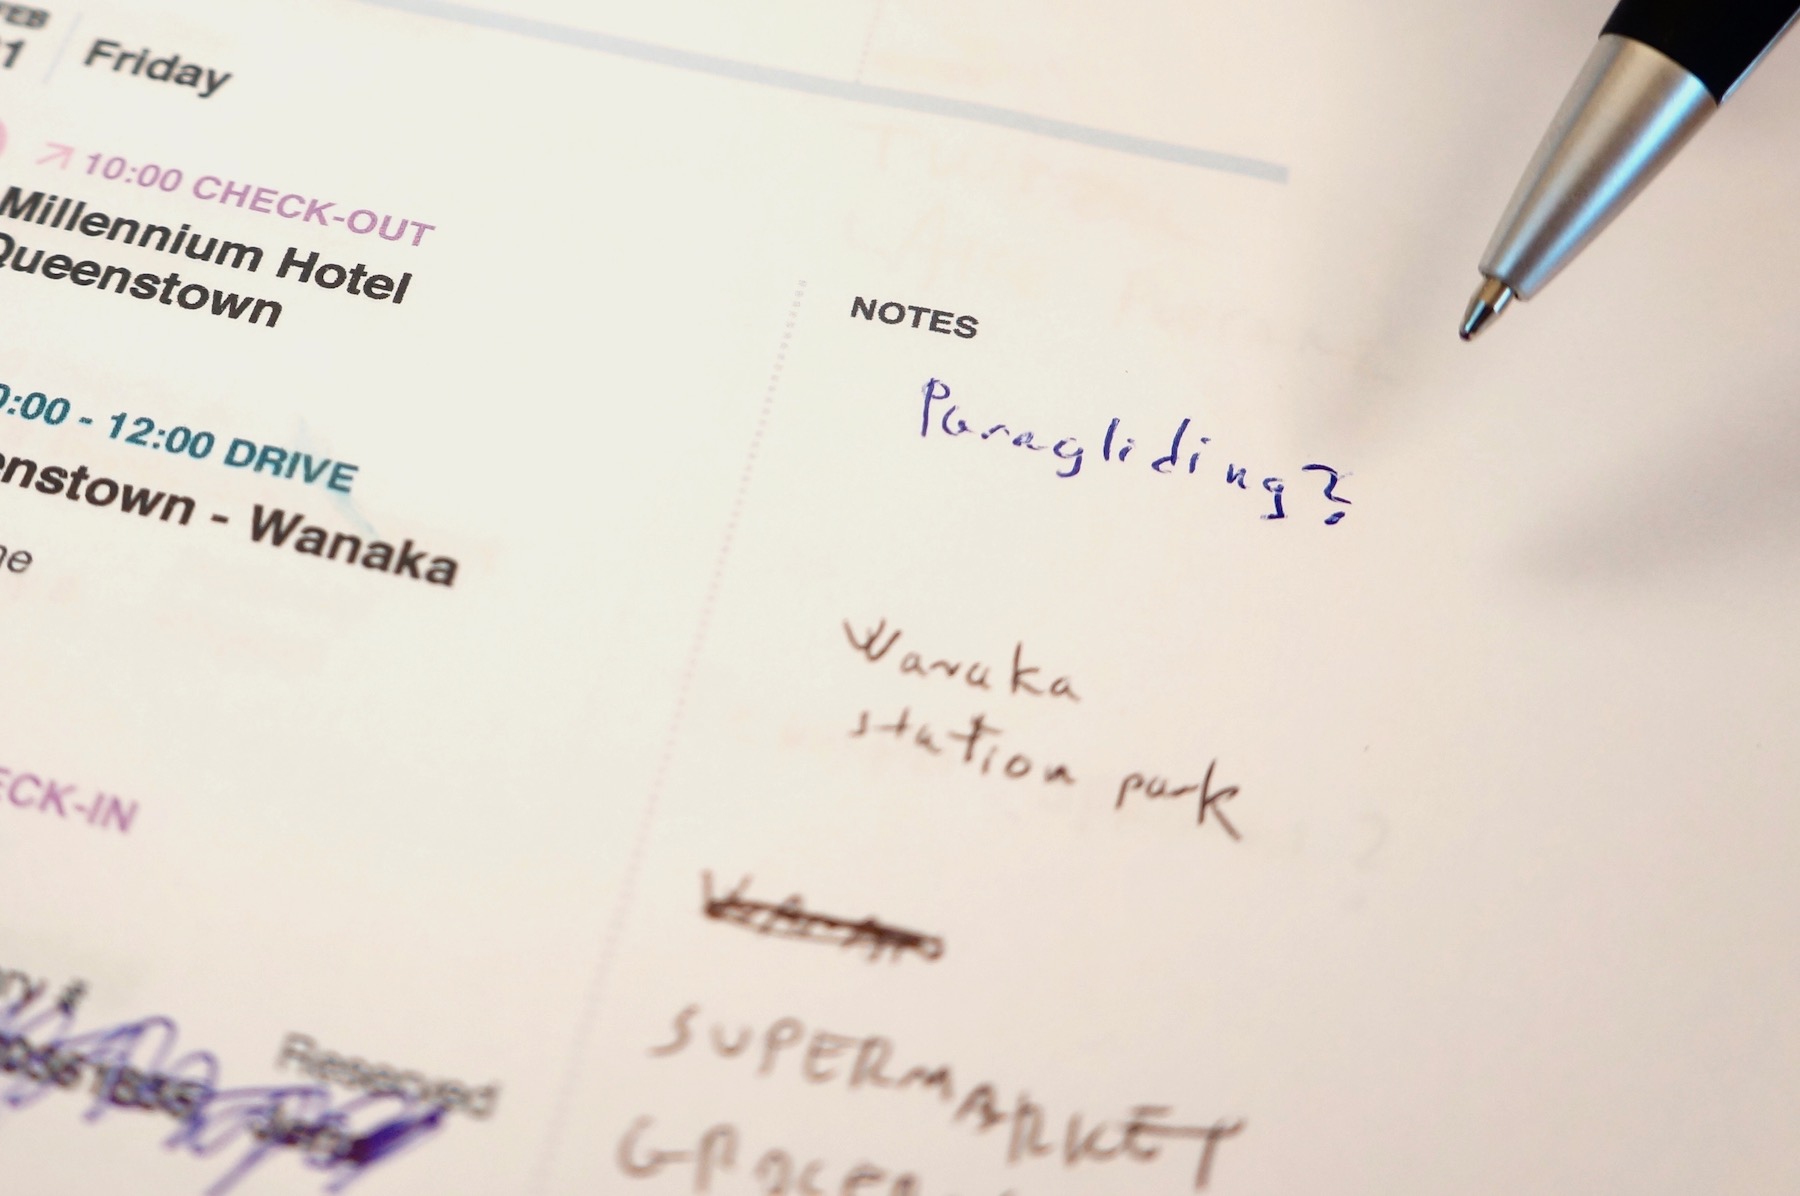 FEB
Friday
10:00 CHECK-OUT
Millennium Hotel
Queenstown
:00 - 12:00 DRIVE
enstown - Wanaka
ECK-IN
Reserved
NOTES
Paragliding?
Wanaka
station park
SUPERMARKET